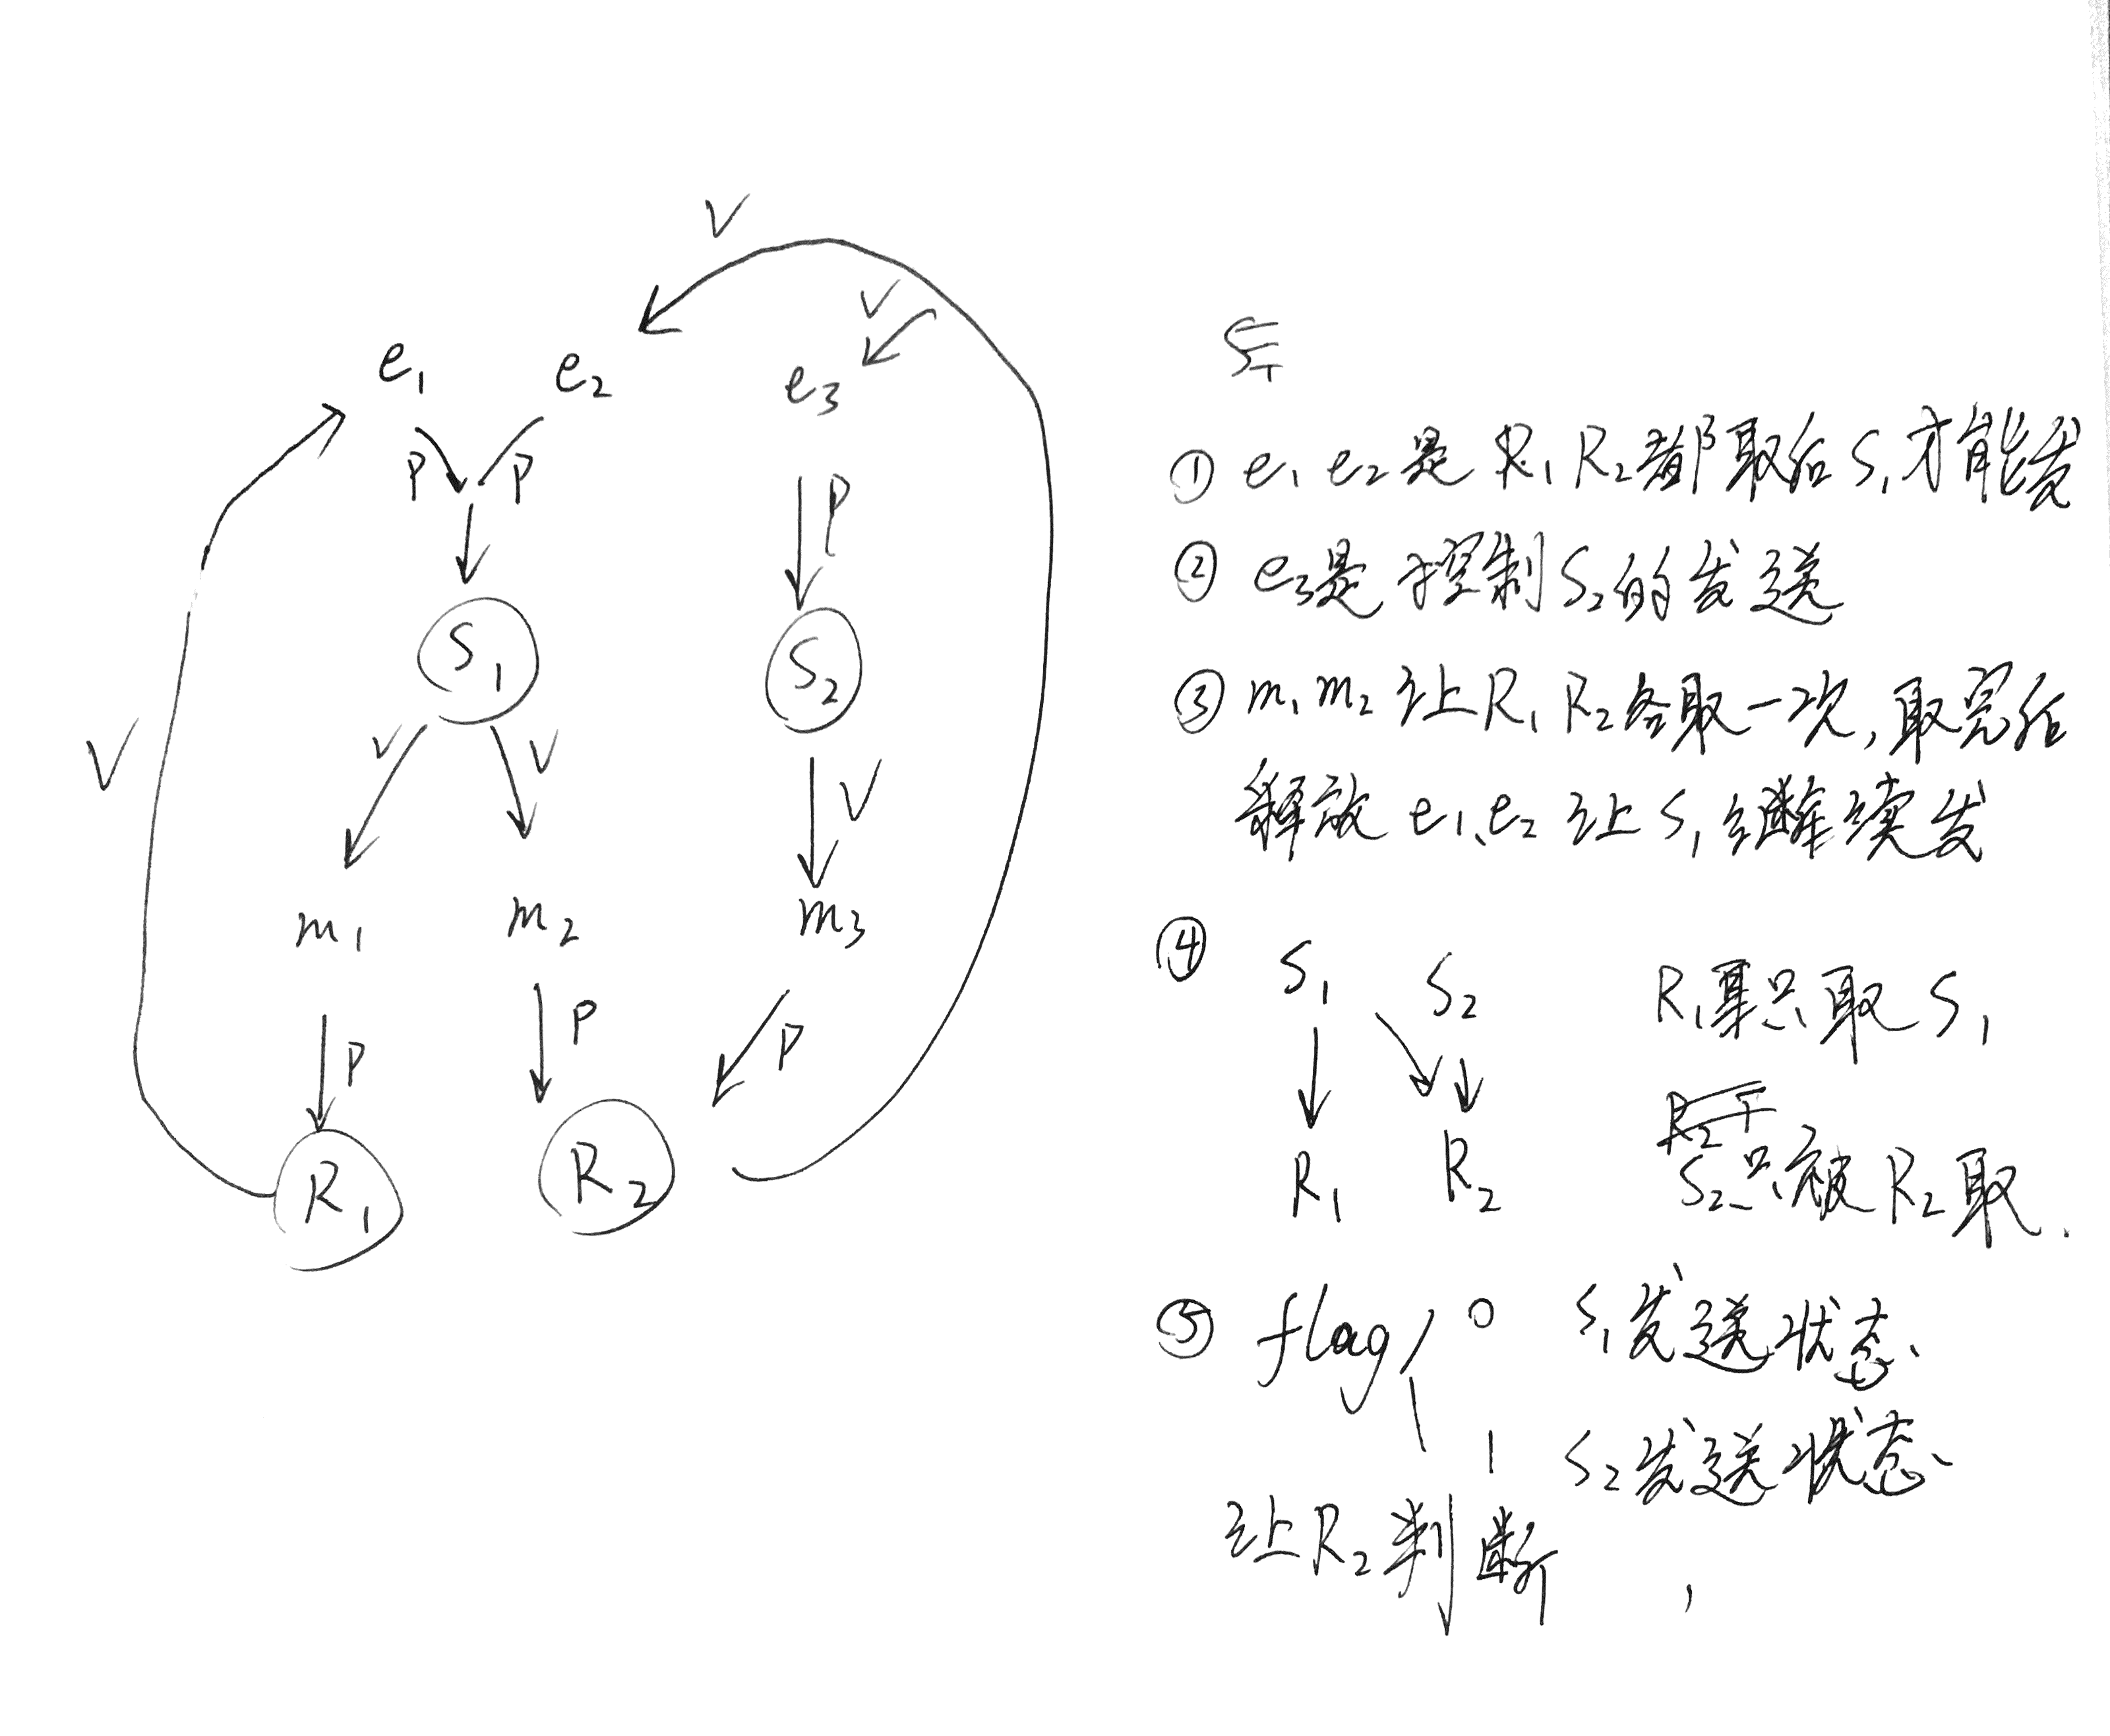 V
V
e₁ e₂ e₃
P P P
S₁ S₂
V V V V
m₁ m₂ m₃
P P P
R₁ R₂
① e₁ e₂是 R₁ R₂都取后 S₁才能发
② e₃是控制S₂的发送
③ m₁ m₂ 让R₁ R₂各取一次,取完后
释放 e₁、e₂ 让 S₁ 继续发
④ S₁ S₂ R₁只取 S₁
R₁ R₂ S₂只被R₂取.
⑤ flag 0 S₁发送状态
1 S₂发送状态
让R₂判断,